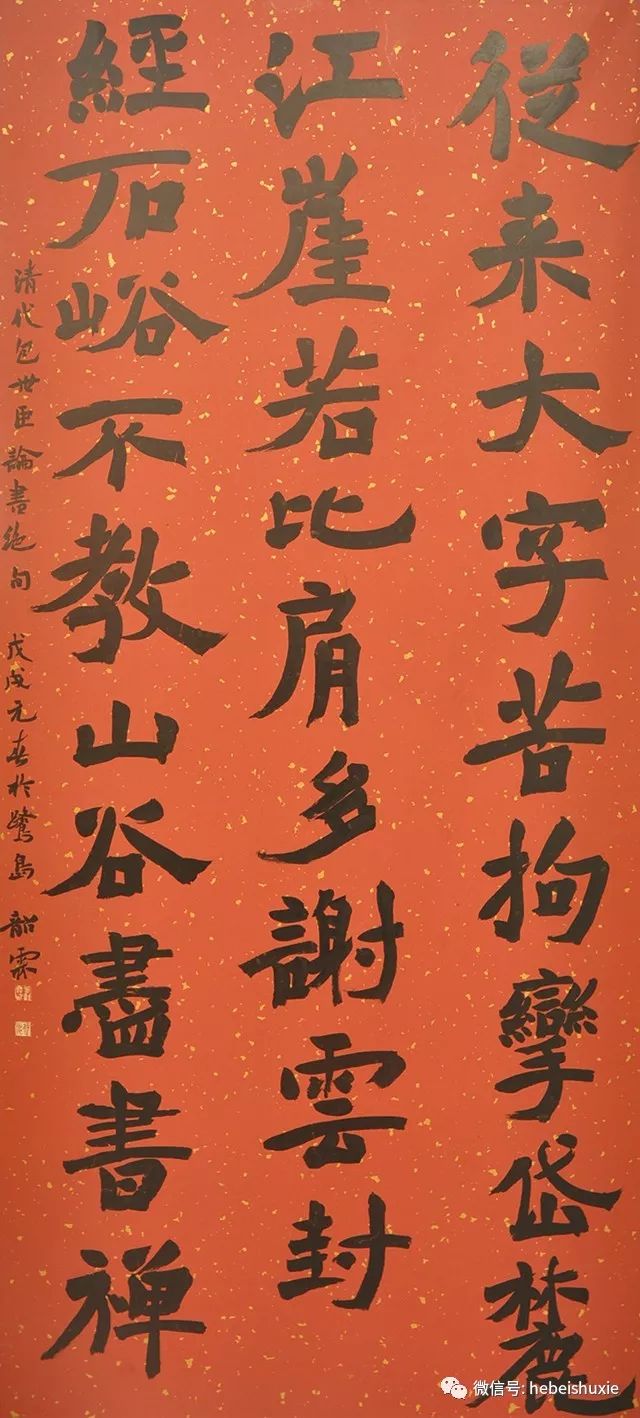 從来大字苦拘攣岱麓
江崖若比肩多謝雲封
經石峪不教山谷盡書禅
清代包世臣論書絕句 戊戌元春於鷺島 韶霖
微信号: hebeishuxie